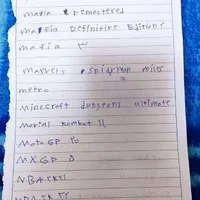 mafia Remastered
mafia Definitive Edition
mafia ۳
marvel's spiderman miles
metro
minecraft dungeons ultimate
mortal kombat 11
Moto GP ۲۰
MXGP ۵
NBA ۲k۲۱
NBA ۲k ۲۲